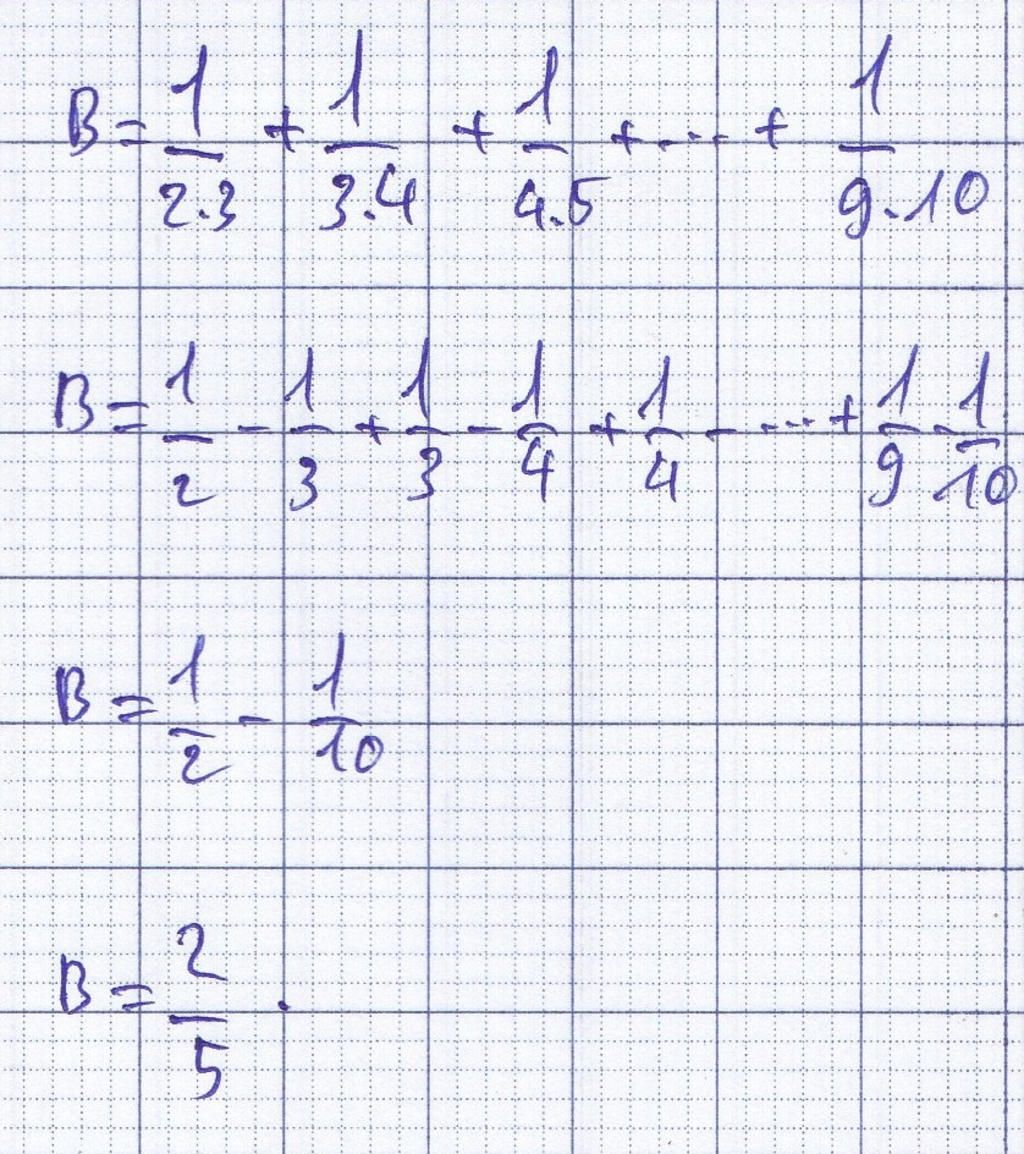 B = 1/2.3 + 1/3.4 + 1/4.5 + ... + 1/9.10
B = 1/2 - 1/3 + 1/3 - 1/4 + 1/4 - ... + 1/9 - 1/10
B = 1/2 - 1/10
B = 2/5 .